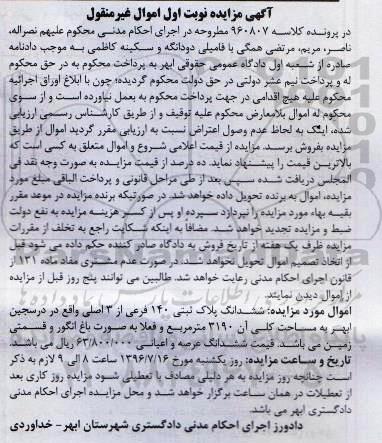 آگهی مزایده نوبت اول اموال غیرمنقول
در پرونده کلاسه ۹۶۰۸۰۷ مطروحه در اجرای احکام مدنی محکوم علیهم نصراله،
ناصر، مریم، مرتضی همگی با فامیلی دودانگه و سکینه کاظمی به موجب دادنامه
صادره از شعبه اول دادگاه عمومی حقوقی ابهر به پرداخت محکوم به در حق محکوم
له و پرداخت نیم عشر دولتی در حق دولت محکوم گردیده؛ چون با ابلاغ اوراق اجرائیه
محکوم علیه هیچ اقدامی در جهت پرداخت محکوم به بعمل نیاورده است و از سوی
محکوم له اموال بلامعارض محکوم علیه توقیف و از طریق کارشناس رسمی ارزیابی
شده، اینک به لحاظ عدم وصول اعتراض نسبت به ارزیابی مقرر گردید اموال از طریق
مزایده بفروش برسد. مزایده از قیمت اعلامی شروع و اموال متعلق به کسی است که
بالاترین قیمت را پیشنهاد نماید. ده درصد از قیمت مزایده به صورت وجه نقد فی
المجلس دریافت شده سپس بعد از طی مراحل قانونی و پرداخت الباقی مبلغ مورد
مزایده، اموال به برنده تحویل داده خواهد شد. در صورتیکه برنده مزایده در موعد مقرر
بقیه بهاء مورد مزایده را نپردازد سپرده او پس از کسر هزینه مزایده به نفع دولت
ضبط و مزایده تجدید خواهد شد. مضافا به اینکه شکایت راجع به تخلف از مقررات
مزایده ظرف یک هفته از تاریخ فروش به دادگاه صادر کننده حکم داده می شود قبل
از اتخاذ تصمیم اموال تحویل نخواهد شد. در صورت عدم مشتری مفاد ماده ۱۳۱ از
قانون اجرای احکام مدنی رعایت خواهد شد. طالبین می توانند پنج روز قبل از مزایده
از اموال دیدن نمایند.
اموال مورد مزایده: ششدانگ پلاک ثبتی ۱۴۰ فرعی از ۳ اصلی واقع در درسجین
ابهر به مساحت کلی آن ۳۱۹۰ مترمربع و فعلا به صورت باغ انگور و قسمتی
زمین می باشد. قیمت ششدانگ عرصه و اعیانی ۶۳/۸۰۰/۰۰۰ ریال می باشد.
تاریخ و ساعت مزایده: روز یکشنبه مورخ ۱۳۹۶/۷/۱۶ ساعت ۸ الی ۹ لازم به ذکر
است چنانچه روز مزایده به هر دلیلی مصادف با تعطیلی شود مزایده روز کاری بعد
از تعطیلات در همان ساعت برگزار خواهد شد و محل مزایده اجرای احکام مدنی
دادگستری ابهر می باشد.
دادورز اجرای احکام مدنی دادگستری شهرستان ابهر- خداوردی